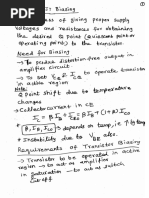 BJT Biasing
process of giving proper supply
voltages and resistances for obtaining
the desired Q point (Quiescent point or
operating point) to the transistor.
Need for Biasing
→ To produce distortion free output in
amplifier circuit
→ To set VCE & IC to operate transistor
in active region
Note
Q point shift due to temperature
changes
→ Collector current in CE
IC = β IB + (1+β) ICO
depends on temp.
→ Instability due to VBE also.
Requirements of Transistor Biasing
→ Transistor to be operated in active
region to act as amplifier
to act as switch